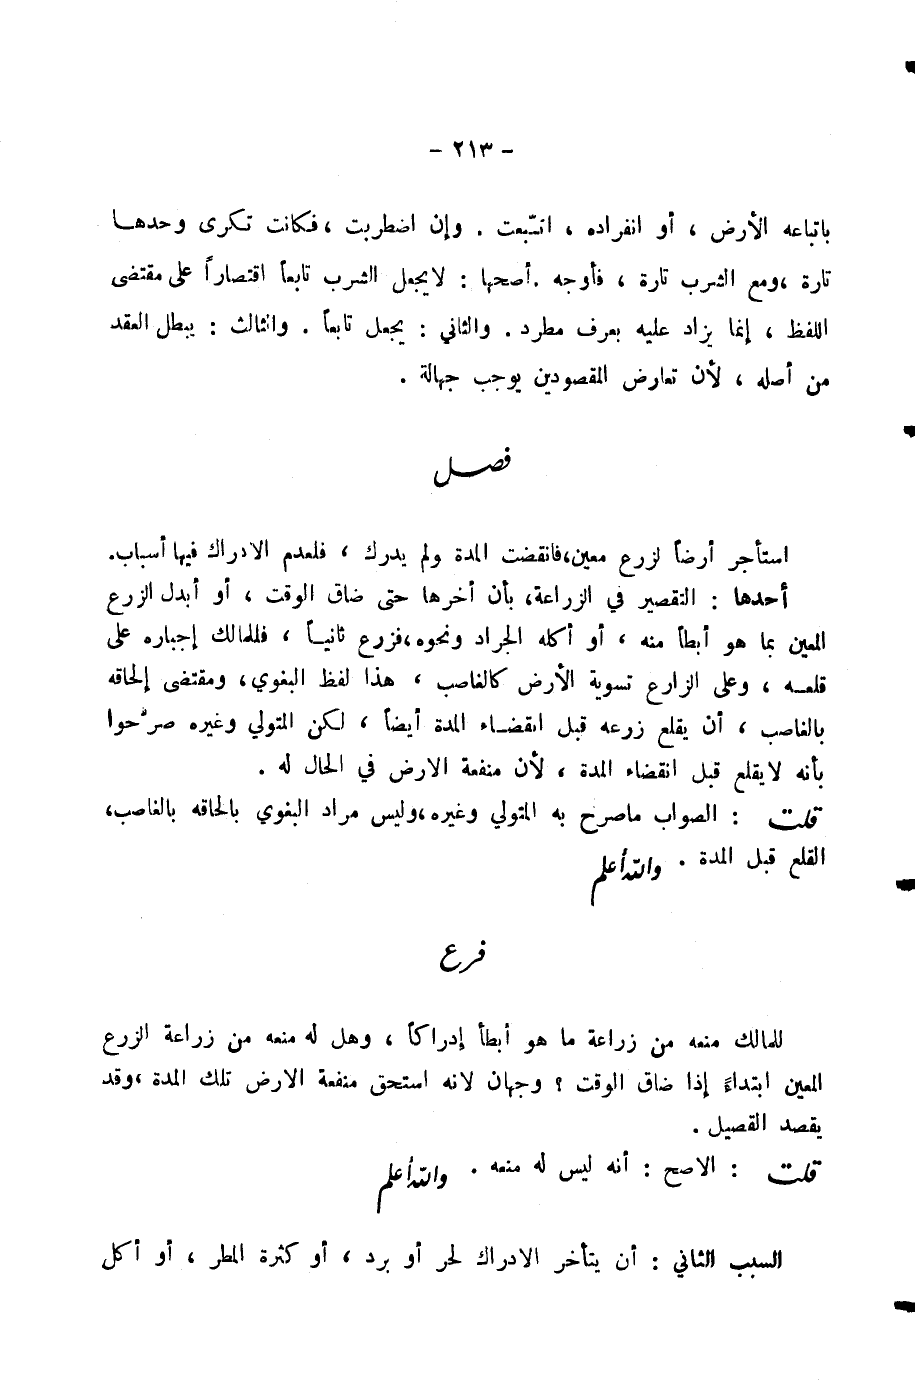 - ٢١٣ -
باتباعه الأرض ، أو انفراده ، اتبّعت . وإن اضطربت ، فكانت تكرى وحدهـا
تارة ،ومع الشرب تارة ، فأوجه .أصحها : لايجعل الشرب تابعاً اقتصاراً على مقتضى
اللفظ ، إنما يزاد عليه بعرف مطرد . والثاني : يجعل تابعاً . والثالث : يبطل العقد
من أصله ، لأن تعارض المقصودين يوجب جهالة .
فصـل
استأجر أرضاً لزرع معين،فانقضت المدة ولم يدرك ، فلعدم الادراك فيها أسباب.
أحدها : التقصير في الزراعة، بأن أخرها حتى ضاق الوقت ، أو أبدل الزرع
المعين بما هو أبطأ منه ، أو أكله الجراد ونحوه،فزرع ثانيـاً ، فللمالك إجباره على
قلعـه ، وعلى الزارع تسوية الأرض كالغاصب ، هذا لفظ البغوي، ومقتضى إلحاقه
بالغاصب ، أن يقلع زرعه قبل انقضـاء المدة أيضاً ، لكن المتولي وغيره صرّحوا
بأنه لايقلع قبل انقضاء المدة ، لأن منفعة الارض في الحال له .
قلت : الصواب ماصرح به المتولي وغيره،وليس مراد البغوي بالحاقه بالغاصب،
القلع قبل المدة . والله أعلم
فرع
للمالك منعه من زراعة ما هو أبطأ إدراكاً ، وهل له منعه من زراعة الزرع
المعين ابتداءً إذا ضاق الوقت ؟ وجهان لانه استحق منفعة الارض تلك المدة ،وقد
يقصد القصيل .
قلت : الاصح : أنه ليس له منعه . والله أعلم
السبب الثاني : أن يتأخر الادراك لحر أو برد ، أو كثرة المطر ، أو أكل